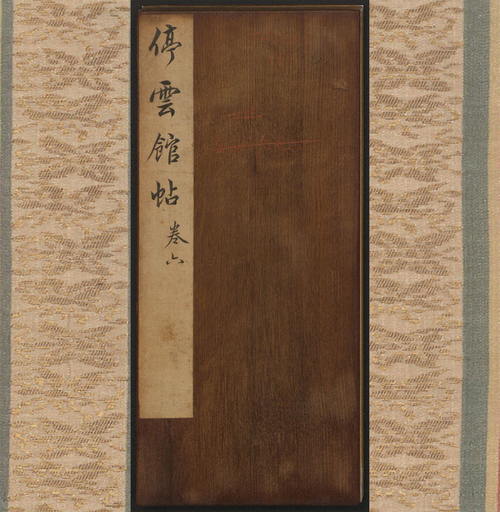 停雲館帖
卷六